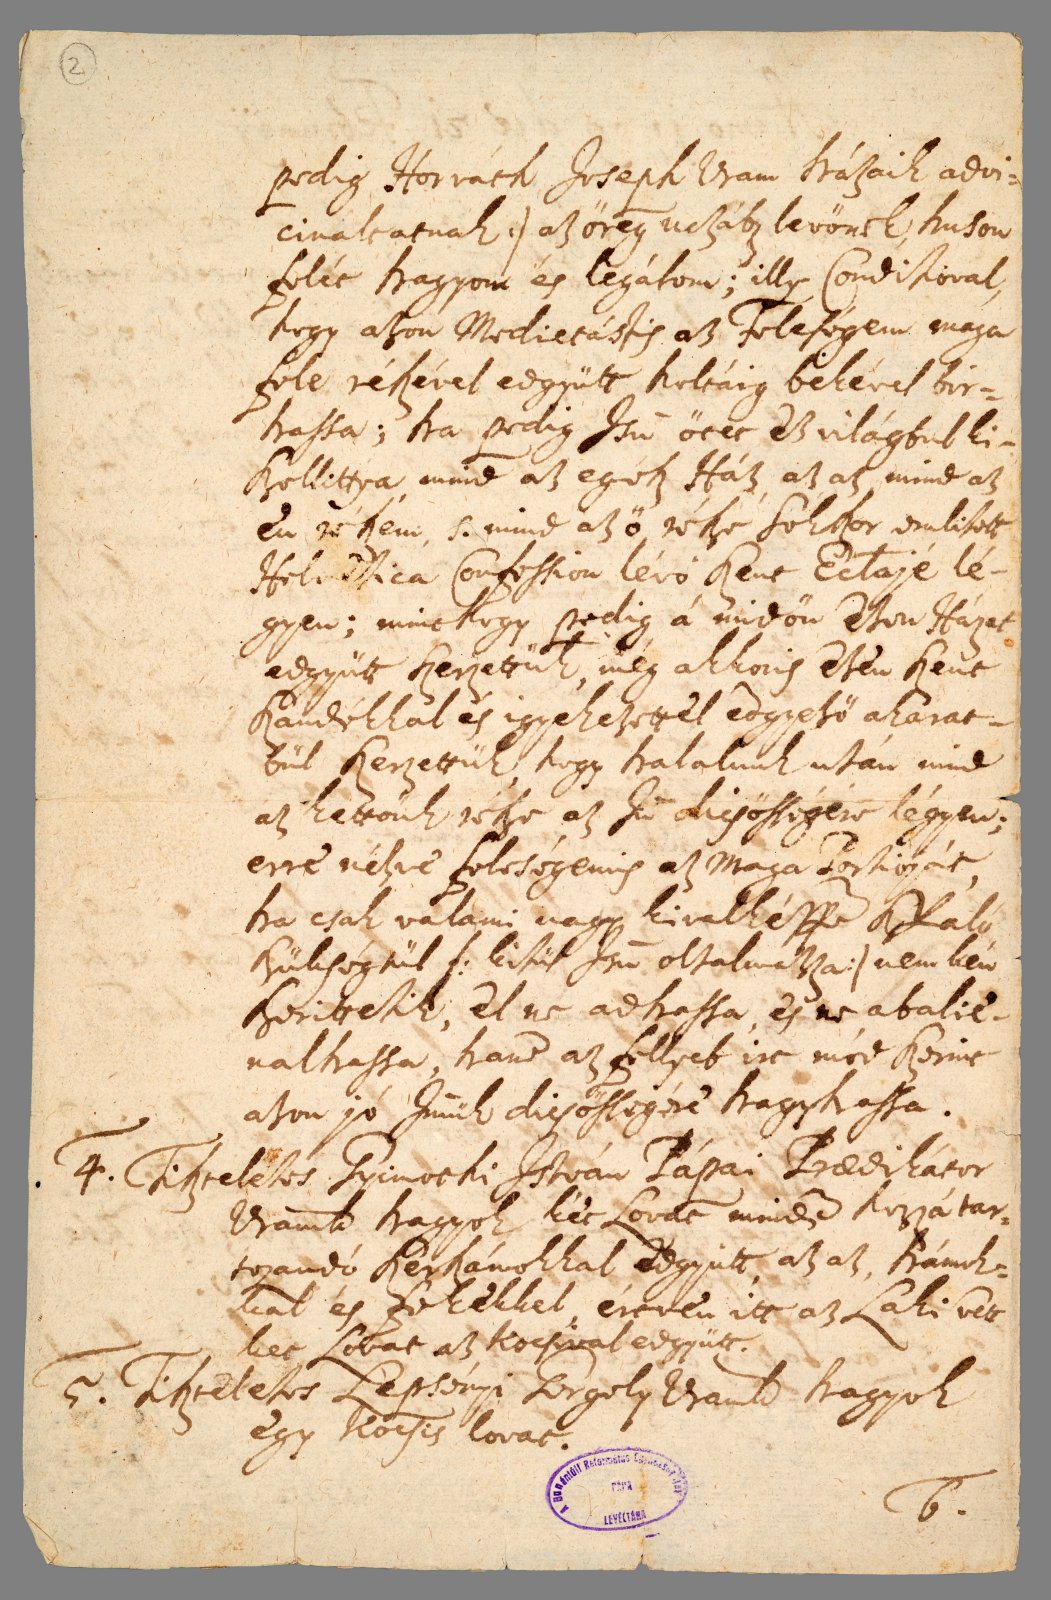 2
pedig Horváth Joseph Uram házaik advi=
cinaltatnak :/ az öreg uczábz levönek huson
felét hagyom és legálom; illy Conditioval,
hogy azon Medietástis az Feleségem maga
fele részével edgyütt holtáig bekével bir=
hassa; ha pedig Isū ötet ez világbul ki=
szollittya, mind az egész Ház, az az mind az
én részem, s. mind az ö része sokszor emlitett
Helvetica Confession lévö Szent Ecclajé lé=
gyen; minthogy pedig á midön ezen Házat
edgyütt szerzettük, még akkoris ezen szent
szándékkal és igyekezettel edgyezö akarat=
bul szerzettük, hogy halalunk után mind
az kettönk része az Isū dicsösségére légyen;
erre nézve feleségemis az maga Portioját,
ha csak valami nagy kivalképpē
szükségtül /: kitül Isū oltalmazza :/ nem kén
szerittetik, el ne adhassa, és ne abalie=
nalhassa, hanē az fellyeb irt mód szerint
azon jó Isūnk dicsösségére hagyhassa.
4. Tisztelétes Gyimothi István Pápai Praedikátor
Uramk hagyok két Lovat mindē hozzá tar=
tozandó szerszámokkal edgyütt, az az, hámok=
kal és fékekkel, értvén itt az Laki vett
két Lovat az kocsival edgyütt.
5. Tisztelétes Lepsényi Gergely Uramk hagyok
egy kocsis lovat.
A Dunántúli Református Egyházkerület
PÁPA
LEVÉLTÁRA
6.